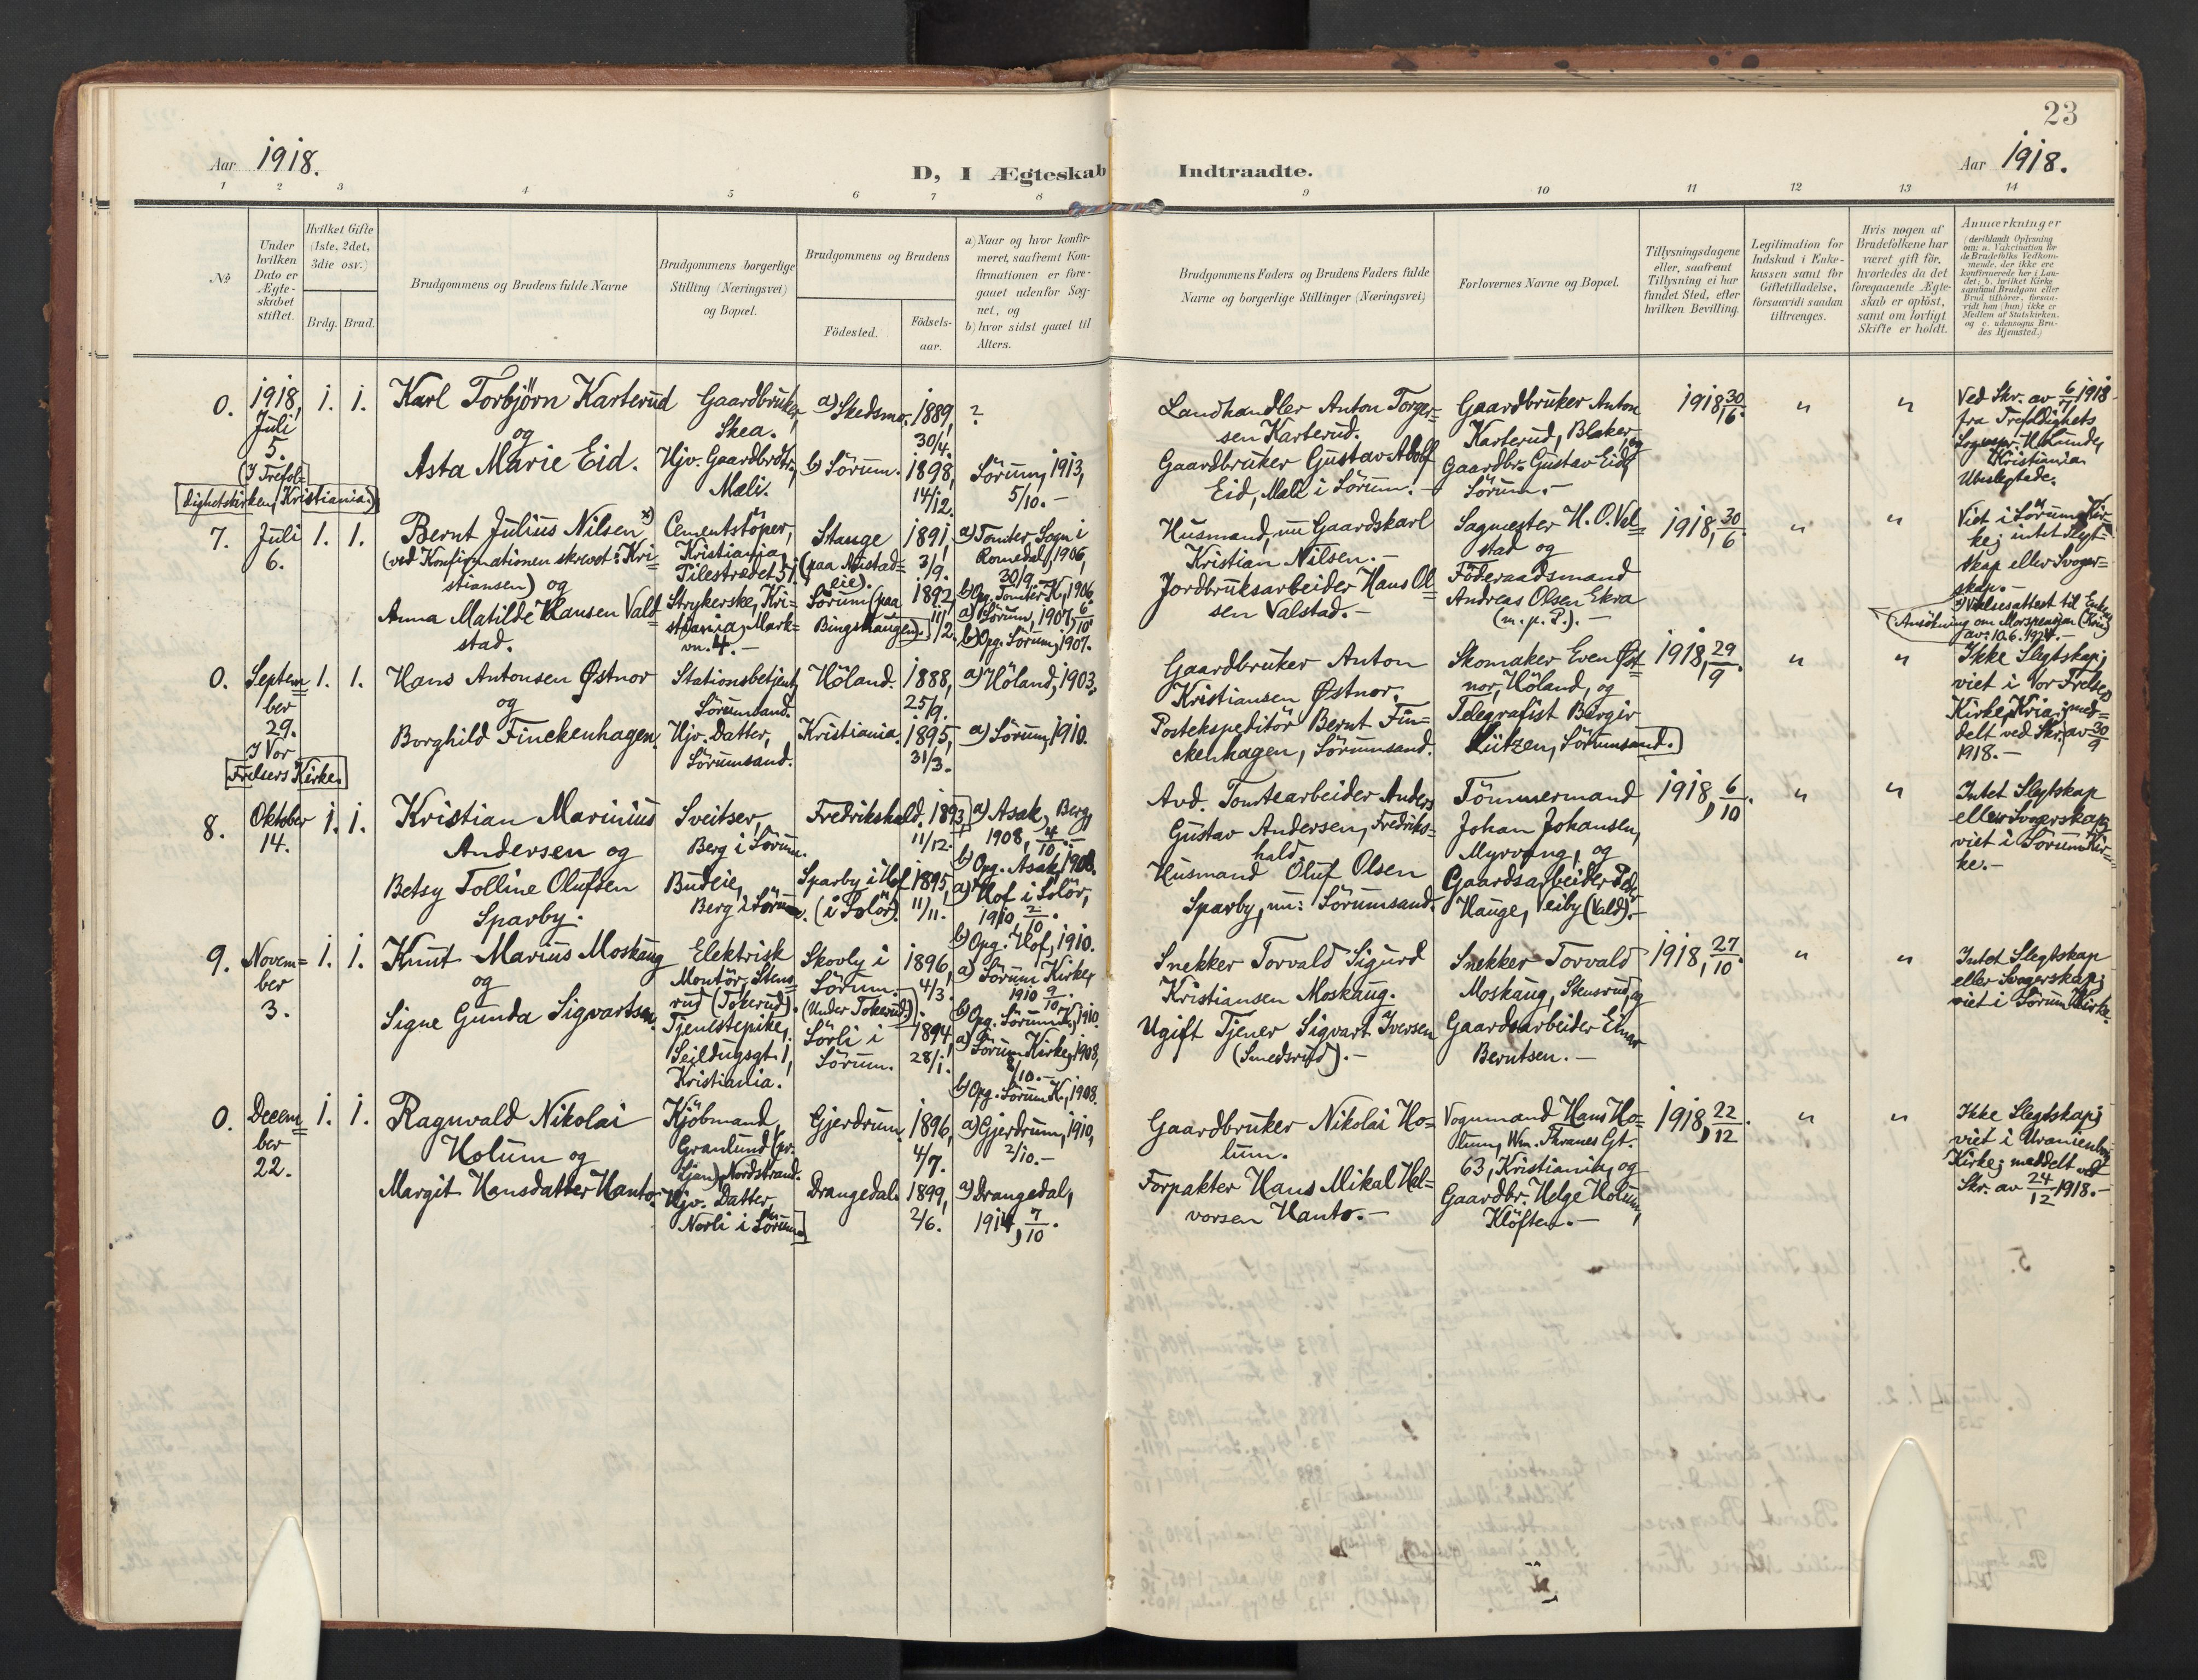 23
Aar 1918.
D, I Ægteskab Indtraadte.
Aar 1918.
1 2 3 4 5 6 7 8 9 10 11 12 13 14
No
Under
hvilken
Dato er
Ægte-
skabet
stiftet.
Hvilket Gifte
(1ste, 2det,
3die osv.)
Brdg. Brud.
Brudgommens og Brudens fulde Navne
Brudgommens borgerlige
Stilling (Næringsvei)
og Bopæl.
Brudgommens og Brudens
Fødested.
Fødsels-
aar.
a) Naar og hvor konfir-
meret, saafremt Kon-
firmationen er fore-
gaaet udenfor Sog-
net, og
b) hvor sidst gaaet til
Alters.
Brudgommens Faders og Brudens Faders fulde
Navne og borgerlige Stillinger (Næringsvei)
Forlovernes Navne og Bopæl.
Tillysningsdagene
eller, saafremt
Tillysning ei har
fundet Sted, efter
hvilken Bevilling.
Legitimation for
Indskud i Enke-
kassen samt for
Giftetilladelse,
forsaavidt saadan
tiltrænges.
Hvis nogen af
Brudefolkene har
været gift før,
hvorledes da det
foregaaende Ægte-
skab er opløst,
samt om lovligt
Skifte er holdt.
Anmærkninger
(deriblandt Oplysning
om: a. Vakcination for
de Brudefolks Vedkom-
mende, der ikke ere
konfirmerede her i Lan-
det; b. hvilket Kirke-
samfund Brudgom eller
Brud tilhører, forsaa-
vidt han (hun) ikke er
Medlem af Statskirken.
og c. udensogns Bru-
des Hjemsted.)
0.
1918,
Juli
5.
(I Trefol=
dighetskirken, Kristiania.)
1. 1.
Karl Torbjörn Karterud
og
Asta Marie Eid.
Gaardbruker,
Skea.
Hjv. Gaardbrdtr.,
Mæli.
a) Skedsmo.
b) Sörum.
1889,
30/4.
1898,
14/12.
?
Sörum, 1913,
5/10.-
Landhandler Anton Torger=
sen Karterud.
Gaardbruker Gustav Adolf
Eid, Mæli i Sörum.-
Gaardbruker Anton
Karterud, Blaker, og
Gaardbr. Gustav Eid,
Sörum.-
1918, 30/6.
" "
Ved Skr. av 6/7 1918
fra Trefoldighets
Sognepr. Maunde,
Kristiania.
Ubeslegtede.
7.
Juli
6.
1. 1.
Bernt Julius Nilsen x)
(ved Konfirmationen skrevet: Kri=
stiansen) og
Anna Matilde Hansen Val=
stad.
Cementstöper,
Kristiania,
Pilestrædet 31.
Strykerske, Kri=
stiania, Mark=
vn. 4.-
Stange
(paa Nustad=
eie).
Sörum (paa
Bingshaugen.)
1891,
3/9.
1892
11/2.
a) Tomter Sogn i
Romedal, 1906,
30/9.-
b) Opg. Tomter K., 1906
a) Sörum, 1907, 6/10
b) Opg. Sörum, 1907.
Husmand, nu Gaardskarl
Kristian Nilsen.-
Jordbruksarbeider Hans Ol=
sen Valstad.-
Sagmester H. O. Vel=
stad og
Föderaadsmand
Andreas Olsen Ekra
(m. p. P.).-
1918, 30/6.
" "
Viet i Sörum Kir=
ke; intet Slegt=
skap eller Svoger=
skap.-
x) Vielsesattest til
Ansökning om Morspension (Kria)
av: 10.6.1924.-
0.
Septem=
ber
29.
I Vor
Frelsers Kirke.
1. 1.
Hans Antonsen Østnor
og
Borghild Finckenhagen.
Stationsbetjent,
Sörumsand.
Hjv. Datter,
Sörumsand.
Höland.
Kristiania.
1888,
25/9.
1895,
31/3.
a) Höland, 1903.
a) Sörum, 1910.
Gaardbruker Anton
Kristiansen Østnor.
Postekspeditör Bernt Fin=
ckenhagen, Sörumsand.
Skomaker Even Øst=
nor, Höland, og
Telegrafist Birger
Lützen, Sörumsand.
1918, 29/9.
" "
Ikke Slegtskap;
viet i Vor Frelsers
Kirke, Kria; med=
delt ved Skr. av 30/9
1918.-
8.
Oktober
14.
1. 1.
Kristian Marinius
Andersen og
Betsy Tolline Olufsen
Sparby.
Sveitser,
Berg i Sörum.
Budeie,
Berg i Sörum.
Fredrikshald.
Sparby i Hof
(i Solör).
1893,
11/12.
1895,
11/11.
a) Asak, Berg,
1908, 4/10.-
b) Opg. Asak, 1908.
a) Hof i Solör,
1910, 2/10.
b) Opg. Hof, 1910.
Avd. Tomtearbeider Anders
Gustav Andersen, Fredriks=
hald.
Husmand Oluf Olsen
Sparby, nu: Sörumsand.
Tömmermand
Johan Johansen,
Myrvang, og
Gaardsarbeider Peder
Hauge, Eiby (Vald).-
1918, 6/10.
" "
Intet Slegtskap
eller Svogerskap;
viet i Sörum Kir=
ke.-
9.
Novem=
ber
3.
1. 1.
Knut Marius Moskaug
og
Signe Gunda Sigvartsen.
Elektrisk
Montör, Stens=
rud (Tokerud).
Tjenestepike,
Seildugsgt. 1,
Kristiania.
Skovly i
Sörum.
(Under Tokerud).
Sörli i
Sörum.
1896,
4/3.
1894,
28/1.
a) Sörum Kirke,
1910 9/10.
b) Opg. Sörum K., 1910.
a) Sörum Kirke, 1908,
/10.-
b) Opg. Sörum K., 1908.
Snekker Torvald Sigurd
Kristiansen Moskaug.
Ugift Tjener Sigvart Iversen
(Smedsrud).-
Snekker Torvald
Moskaug, Stensrud, og
Gaardsarbeider Einar
Berntsen.-
1918, 27/10.
" "
Intet Slegtskap
eller Svogerskap;
viet i Sörum Kirke.
0.
Decem=
ber
22.
1. 1.
Ragnvald Nikolai
Holum og
Margit Hansdatter Hanto.
Kjöbmand,
Granlund (pr.
Ljan), Nordstrand.
Hjv. Datter,
Norli i Sörum.
Gjerdrum.
Drangedal.
1896,
4/7.
1899,
2/6.
a) Gjerdrum, 1910,
2/10.-
a) Drangedal,
1914, 7/10.
Gaardbruker Nikolai Ho=
lum.
Forpakter Hans Mikal Hal=
vorsen Hanto.-
Vognmand Hans Ho=
lum, Wm. Thranes Gt.
63, Kristiania, og
Gaardbr. Helge Holum,
Klöften.-
1918, 22/12.
" "
Ikke Slegtskap;
viet i Uranienborg
Kirke; meddelt ved
Skr. av 24/12 1918.-